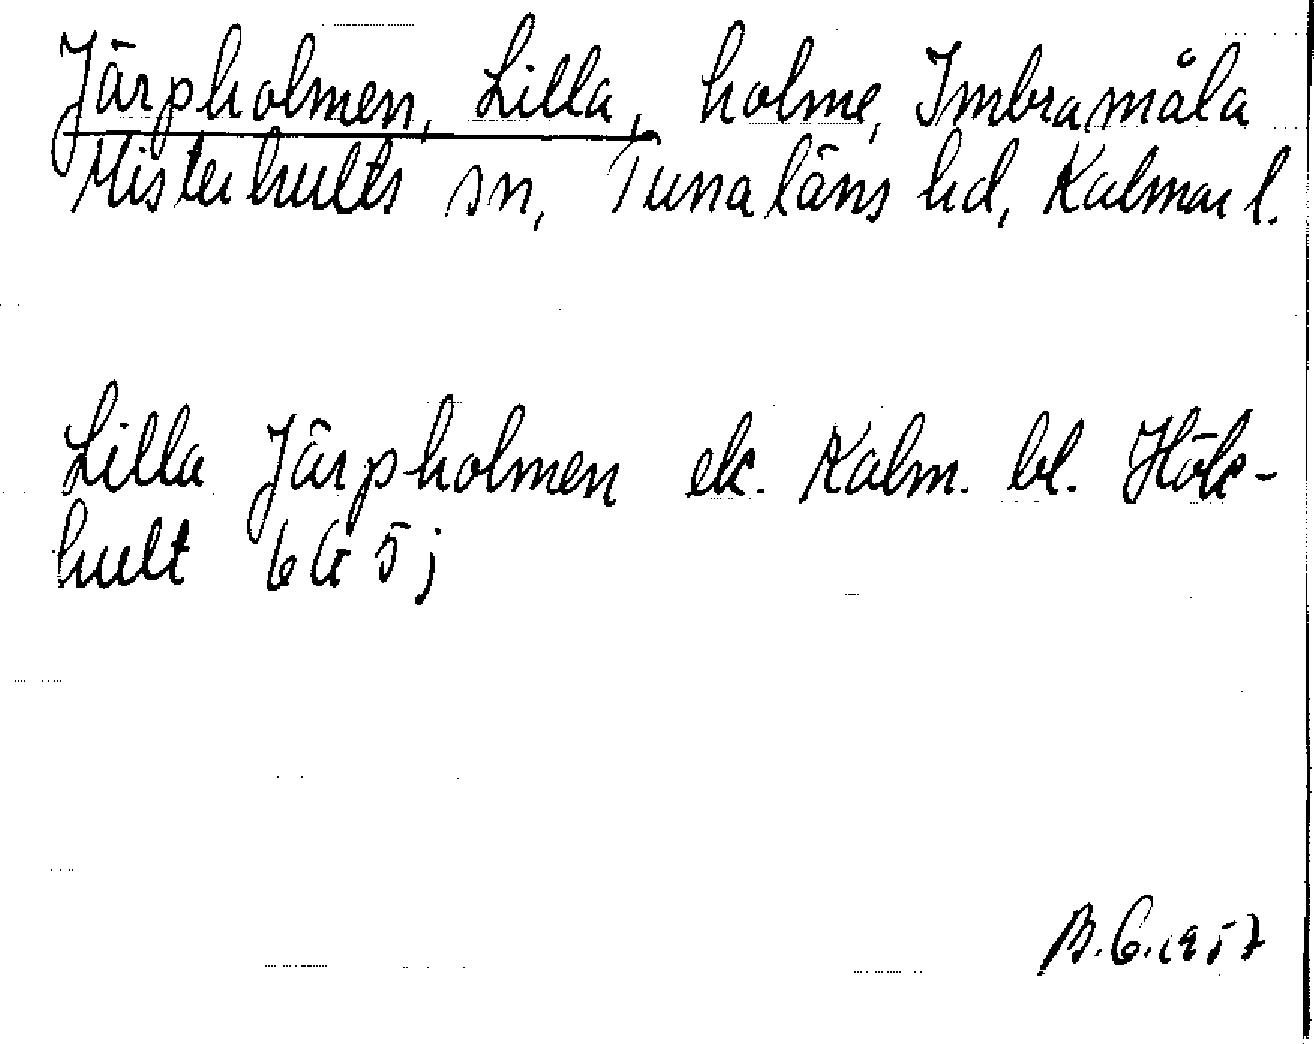 Järpholmen, Lilla, holme, Imbramåla
Misterhults sn, Tunaläns hd, Kalmar l.
Lilla Järpholmen ek. Kalm. bl. Hök-
hult 6G 5j
B.G.1957